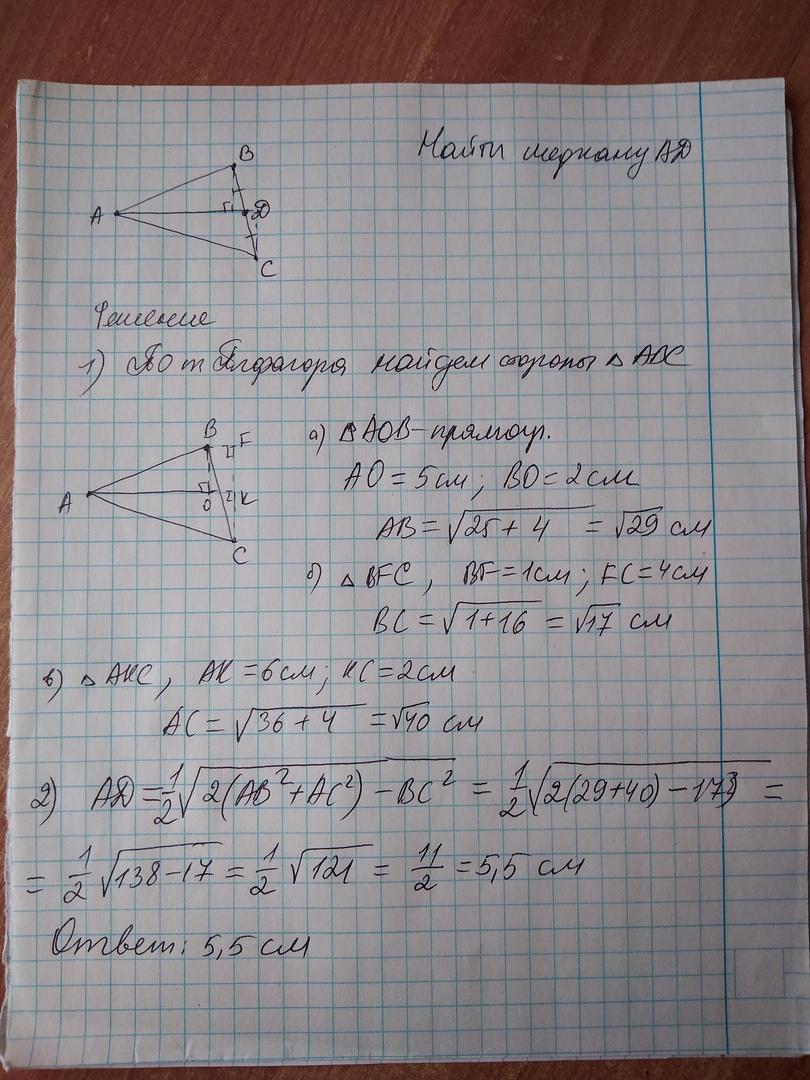 Найти медиану АD
B
A
D
C
Решение
1) По т Пифагора найдем стороны △ ABC
B
F
A
O
K
C
а) △AOB-прямоуг.
AO = 5см ; BO = 2см
AB = √25 + 4 = √29 см
б) △ BFC , BF = 1см ; FC = 4см
BC = √1+16 = √17 см
в) △ AKC , AK = 6см ; KC = 2см
AC = √36 + 4 = √40 см
2) AD = 1/2 √2(AB² + AC²) - BC² = 1/2 √2(29+40) - 17 =
= 1/2 √138-17 = 1/2 √121 = 11/2 = 5,5 см
Ответ: 5,5 см